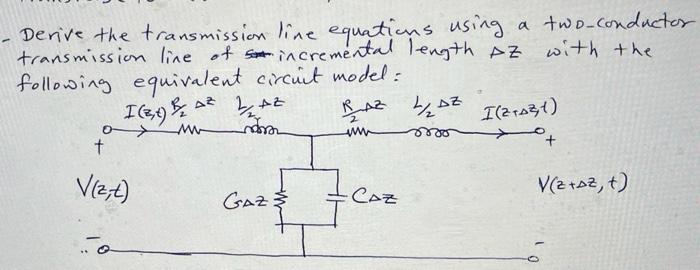 - Derive the transmission line equations using a two-conductor
transmission line of incremental length ΔZ with the
following equivalent circuit model:
I(z,t) R/2 ΔZ L/2 ΔZ R/2 ΔZ L/2 ΔZ I(z+Δz,t)
+ +
V(z,t) GΔZ CΔZ V(z+Δz,t)
- -